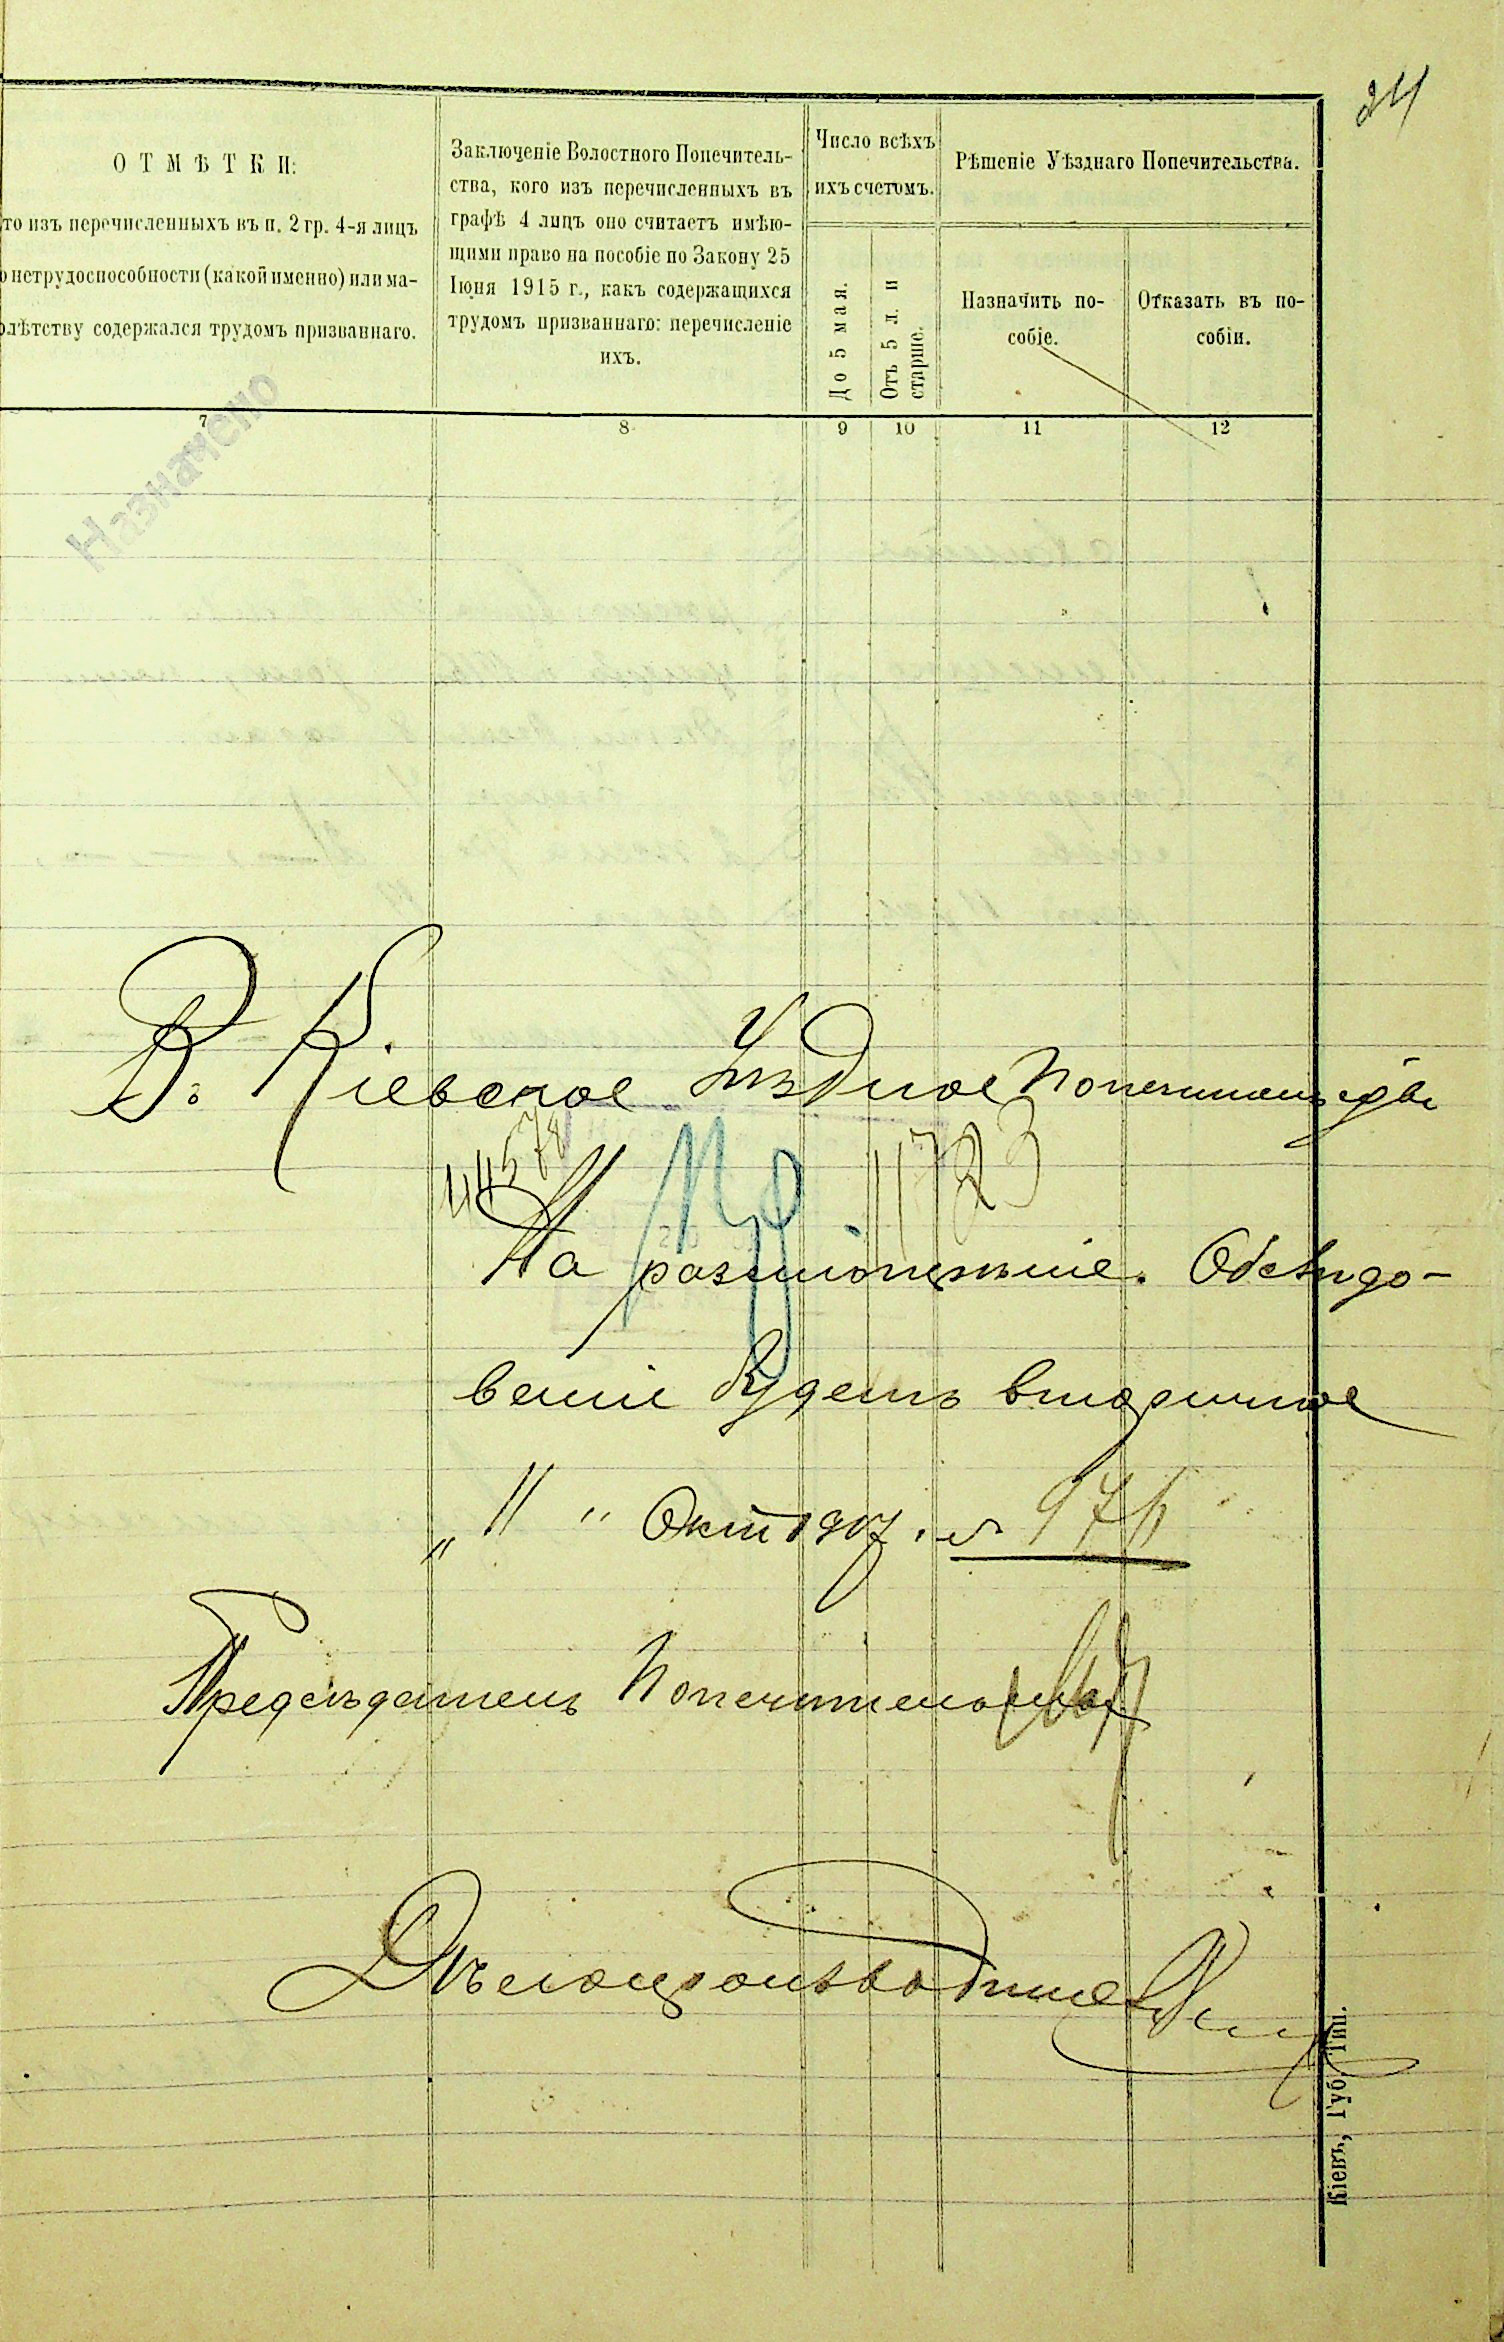 24
ОТМѢТКИ:
то изъ перечисленныхъ въ п. 2 гр. 4-я лицъ
о нетрудоспособности (какой именно) или ма-
олѣтству содержался трудомъ призваннаго.
Заключеніе Волостного Попечитель-
ства, кого изъ перечисленныхъ въ
графѣ 4 лицъ оно считаетъ имѣю-
щими право на пособіе по Закону 25
Іюня 1915 г., какъ содержащихся
трудомъ призваннаго: перечисленіе
ихъ.
Число всѣхъ
ихъ счетомъ.
До 5 мая.
Отъ 5 л. и
старше.
Рѣшеніе Уѣзднаго Попечительства.
Назначить по-
собіе.
Отказать въ по-
собіи.
7 8 9 10 11 12
Назначено
В. Кіевское Уѣздное Попечительство
44578
11723
На разсмотрѣніе. Обслѣдо-
ваніе будетъ вторичное
„ 11 " Окт 1917. №
Предсѣдатель Попечительства
Дѣлопроизводитель
Кіевъ, Губ. Тип.